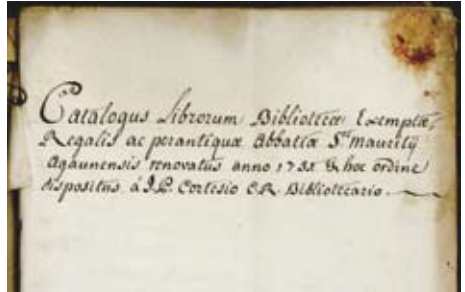 Catalogus Librorum Bibliotecæ Exemptæ,
Regalis ac perantiquæ Abbatiæ Sti Mauritij
Agaunensis renovatus anno & hoc ordine
dispositus, à J.P. Cortesio C.R. Bibliotecario.